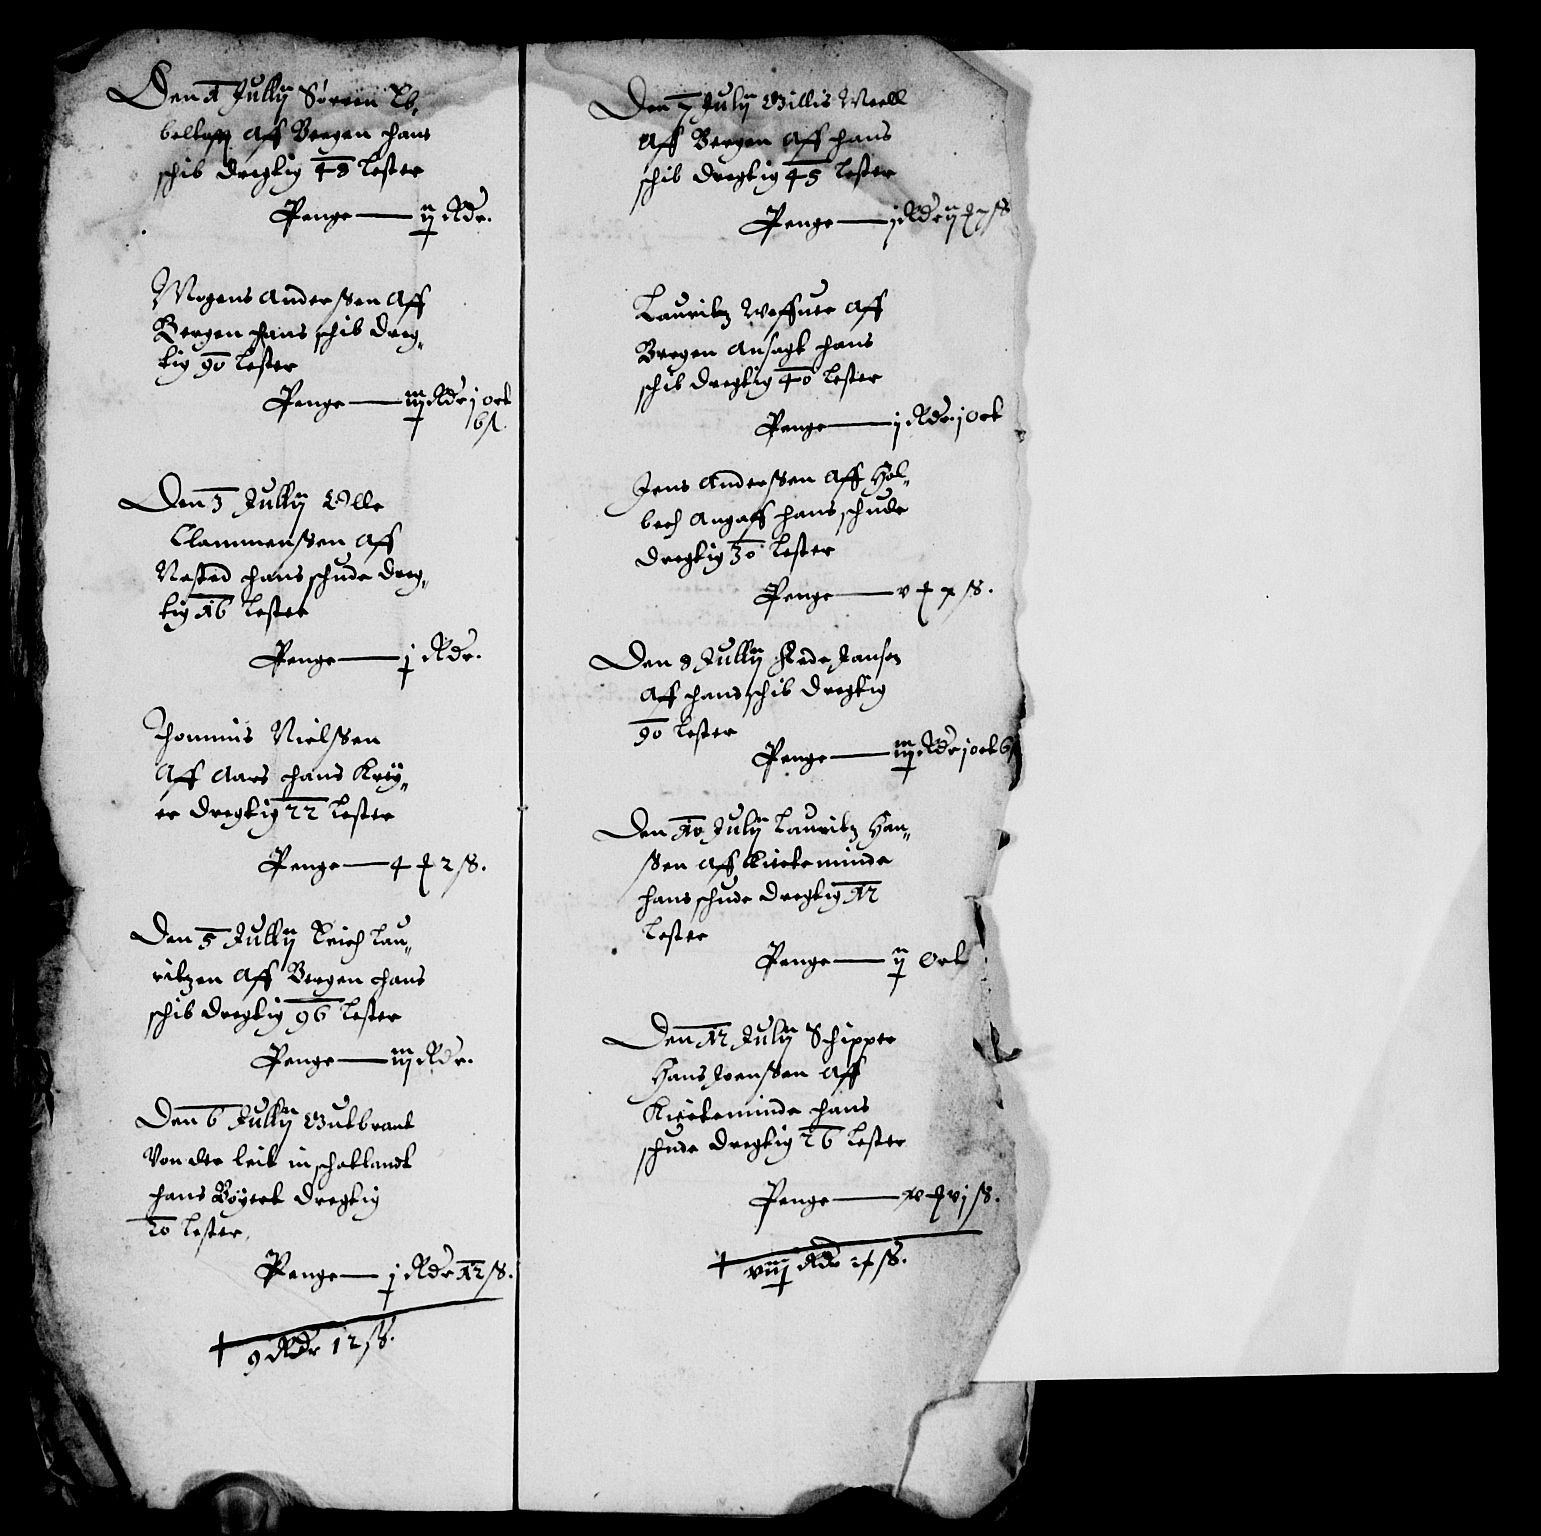 Den 1 Jullÿ Sören Eb¬
beltofft Aff Bergen hans
schib dregtig 48 Lester
Penge — ij Rdr.
Mogens Anderssen Aff
Bergen hans schib dreg¬
tig 90 Lester
Penge — iij Rdr j ort
6 s.
Den 3 Jullÿ Olle
Clammenssen Aff
Nested hans schude dreg¬
tig 16 Lester
Penge — j Rdr.
Thommis Nielssen
Aff Aars hans Kreÿ¬
er dregtig 22 Lester
Penge — 4 ₰ 2 ß.
Den 5 Jullÿ Erich Lau¬
ritzen Aff Bergen hans
schib dregtig 96 Lester
Penge — iij Rdr.
Den 6 Jullÿ Gulbrant
Von der leit in schotlandt
hans Böyert dregtig
20 Lester
Penge — j Rdr 12 ß.
9 Rdr 12 ß.
Den 7 Julÿ Gillis Weell
Aff Bergen Aff hans
schib dregtig 45 Lester
Penge — j Rdr ij ₰ 7 ß
Lauritz Weffuer Aff
Bergen Ansagt hans
schib dregtig 40 Lester
Penge — j Rdr. j Ort
Jens Anderssen Aff Hol¬
bech Angaff hans schude
dregtig 30 Lester
Penge — v ₰ 7 ß.
Den 8 Jullÿ Fede Jansen
Aff hans schib dregtig
90 Lester
Penge — iij Rdr j ort 6 s
Den 10 Julÿ Lauritz Han¬
ssen Aff Kierteminde
hans schude dregtig 12
Lester
Penge — ij Ort
Den 12 Julÿ Schipper
Hans Joenssen Aff
Kierteminde hans
schude dregtig 26 Lester
Penge — xv ₰ vj ß.
viij Rdr ß.